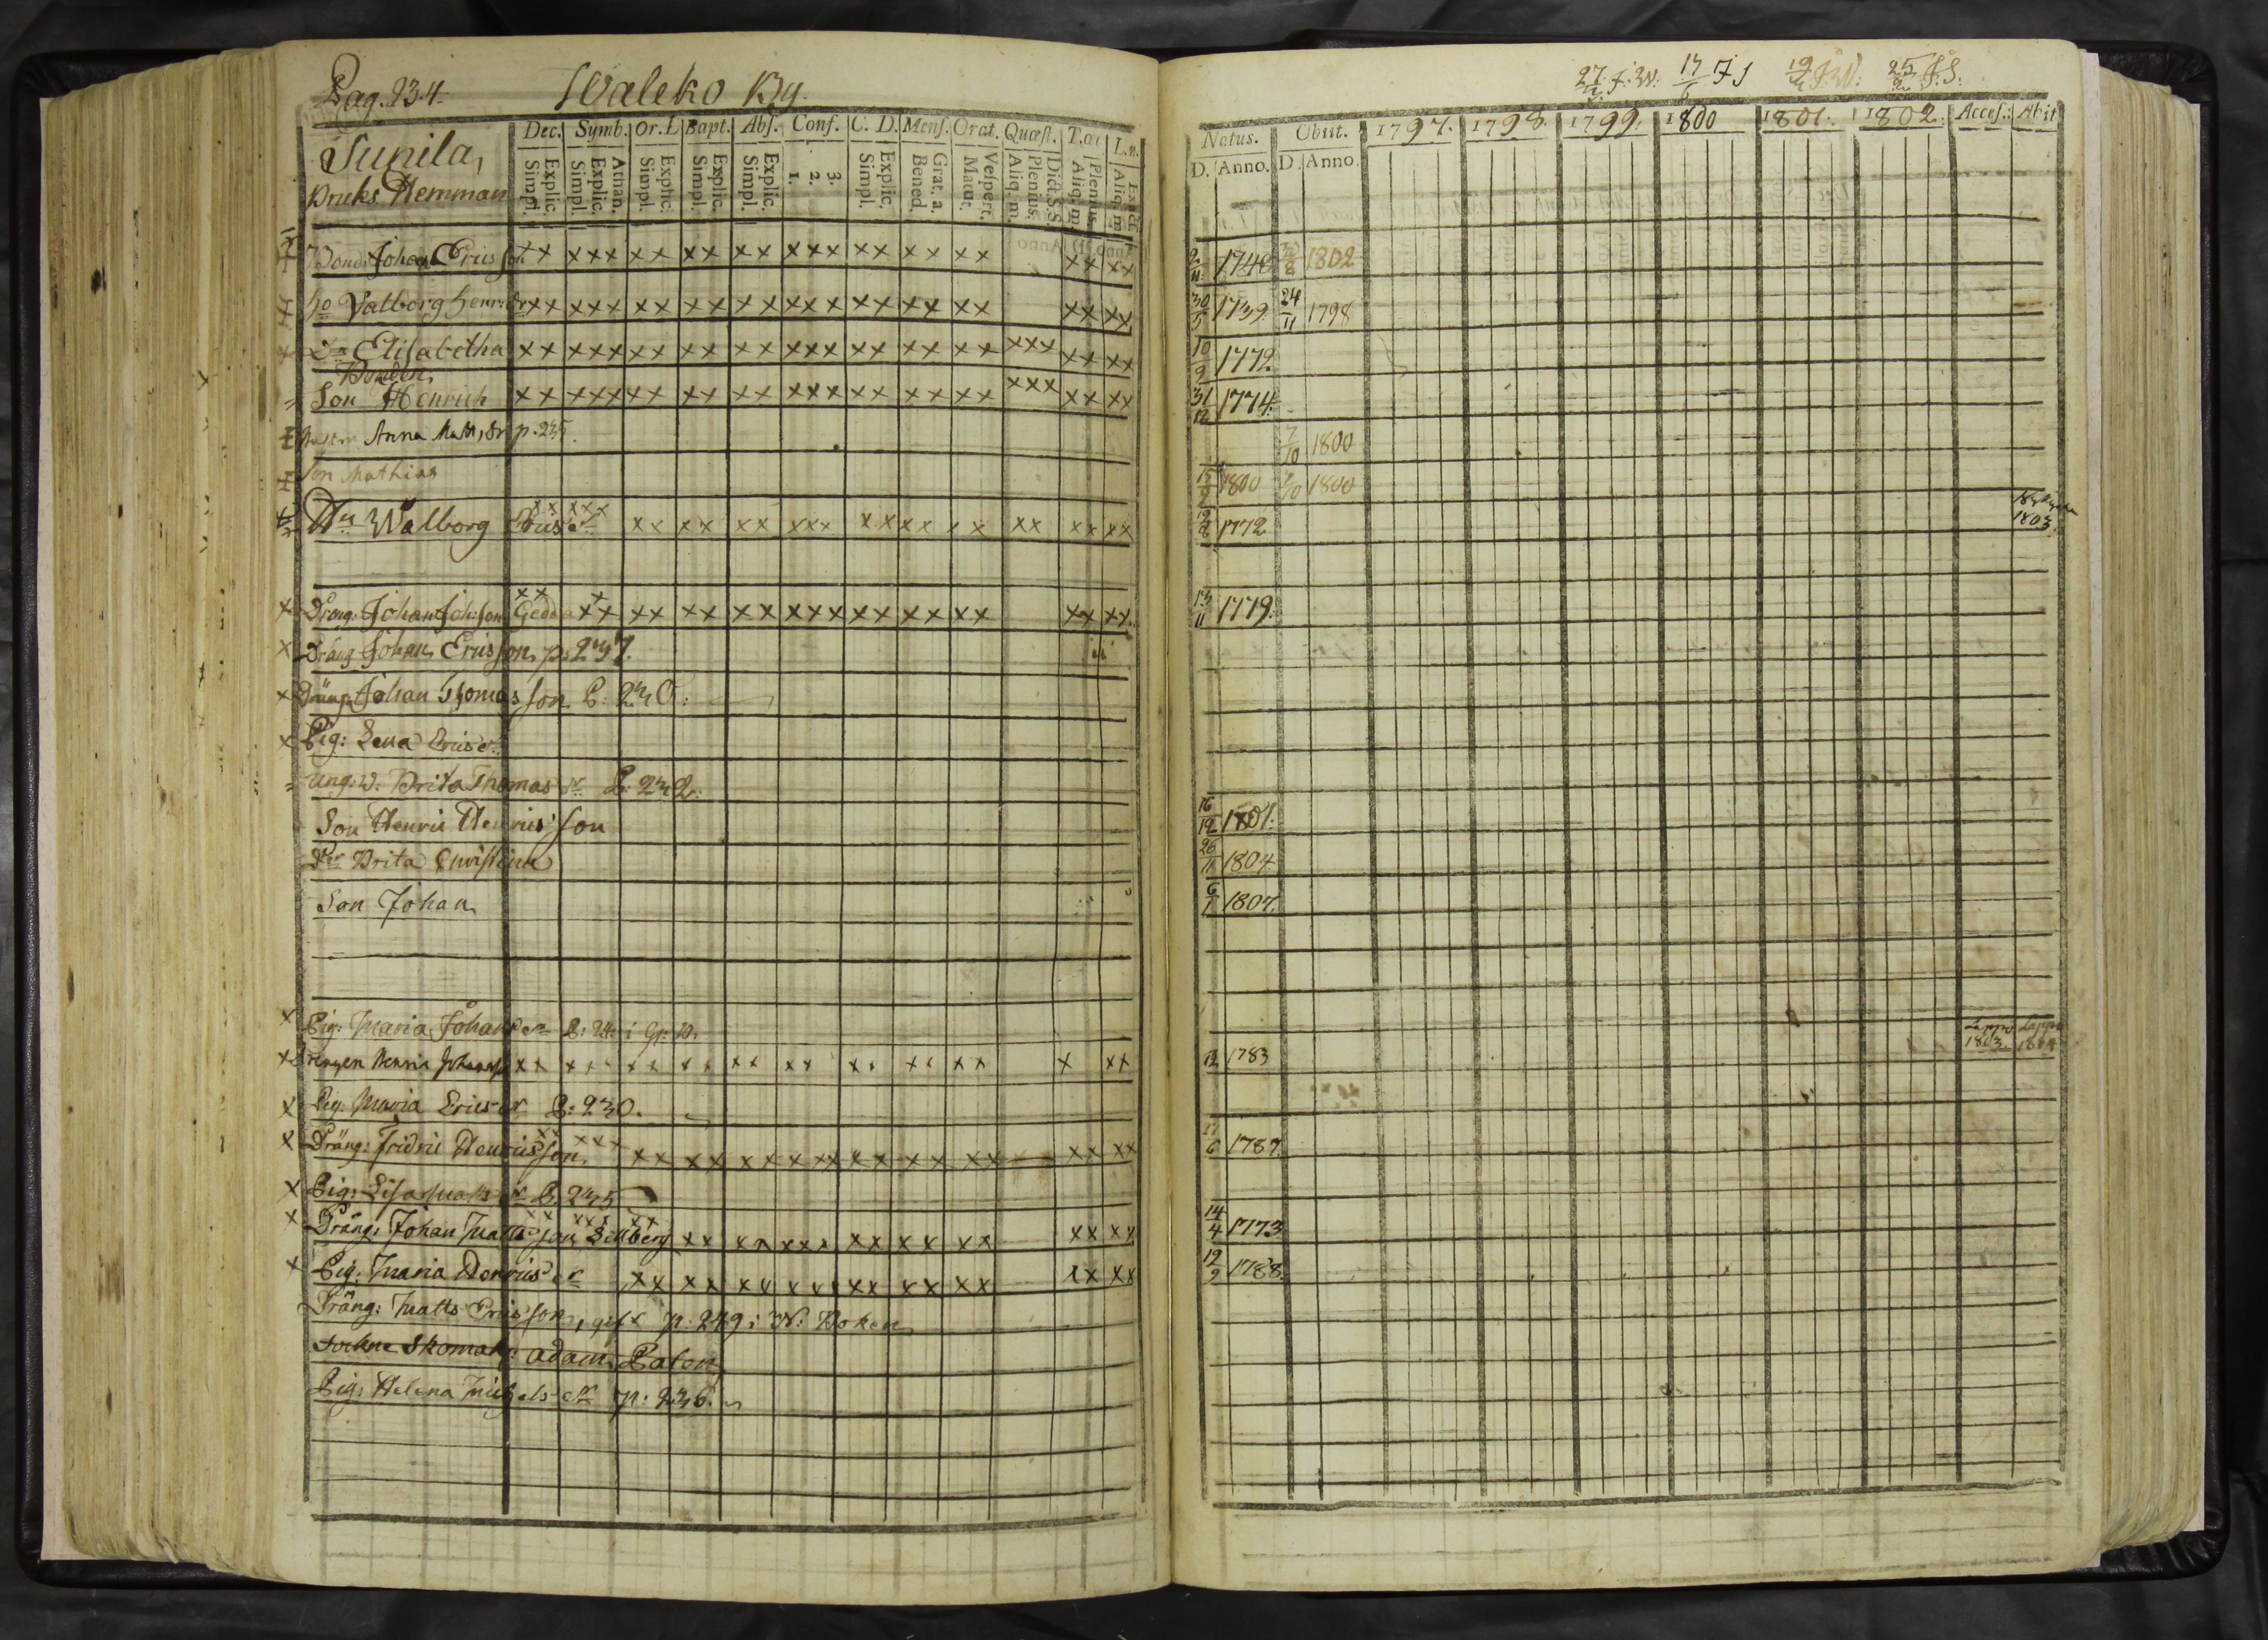 Pag. 234. Waleko By.
27/2 F. W. 17/6 F S 19/2 F W. 25/2 F. S.
Sunila,
Bruks Hemman
Dec. Symb. Or. L Bapt. Abs. Conf. C. D. Mens. Orat. Quæst. L.n.
Explic. Simpl. Athan. Explic. Simpl. Explic. Simpl. Explic. Simpl. Explic. Simpl. 3. 2. 1. Explic. Simpl. Grat. a. Bened. Vespert. Matut. Dict. S. S. Plenius. Aliq. m. Plenius Aliq. m. Aliq. m.
Natus. Obiit. 1797. 1798. 1799. 1800 1801. 1802. Access. Abiit
D. Anno. D. Anno
Bond. Johan Ericsson xx xxx xx xx xx xxx xx xx xx xx xx 2/11 1748 30/8 1802
ho Valborg Henr: dr xx xxx xx xx xx xxx xx xx xx xx xx 30/5 1739. 24/11 1798
Dr Elisabetha xx xxx xx xx xx xxx xx xx xx xxx xx xx 10/9 1772
Bonden
Son Henrich xx xxx xx xx xx xxx xx xx xx xxx xx xx 31/12 1774.
Hustru Anna Matts dr p. 235. 7/10 1800
Son Mathias 1800 1800
Walborg Erics dr xx xxx xx xx xx xxx xx xx xx xx xx xx 1772 1803.
Dräng: Johan Joh:son Gedda xx xxx xx xx xx xxx xx xx xx xx xx. 13/11 1779.
Dräng Johan Ericsson, p. 237.
Dräng: Johan Thomasson P. 230:
Pig: Lena Erics dr
Ung: w. Brita Thomas dr P. 232:
Son Henric Henricsson 16/12 1801.
Dr Brita Christina 26/11 1804
Son Johan 6/1 1807.
Pig: Maria Johans dr
Drengen Henric Johanss. xx xxx xx xx xx xx xx xx xx x xx 12 1783 Lappo 1803. Lappo 1804
Pig. Maria Erics dr P: 230.
Dräng: Fridric Henricsson xx xxx xx xx xx xxx xx xx xx xx xx 17/6 1787.
Pig: Lisa Matts dr P. 235
Dräng: Johan Mattsson Sellberg xx xxx xx xx xx xxx xx xx xx xx xx 14/4 1773
Pig. Maria Henrics dr xx xx xx xxx xx xx xx xx xx 12/9 1788.
Dräng: Matts Ericsson, gift p: 249 i W: Boken
Sockne Skomak: Adam Palen
Pig: Helena Michels dr p: 236.